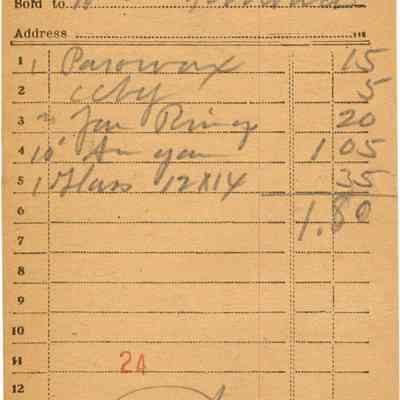 Sold to
Address
1 1 Parowax 15
2 5
3 2 Jar Rings 20
4 10' 1 05
5 1 Glass 12X14 35
6 1.80
7
8
9
10
11 24
12